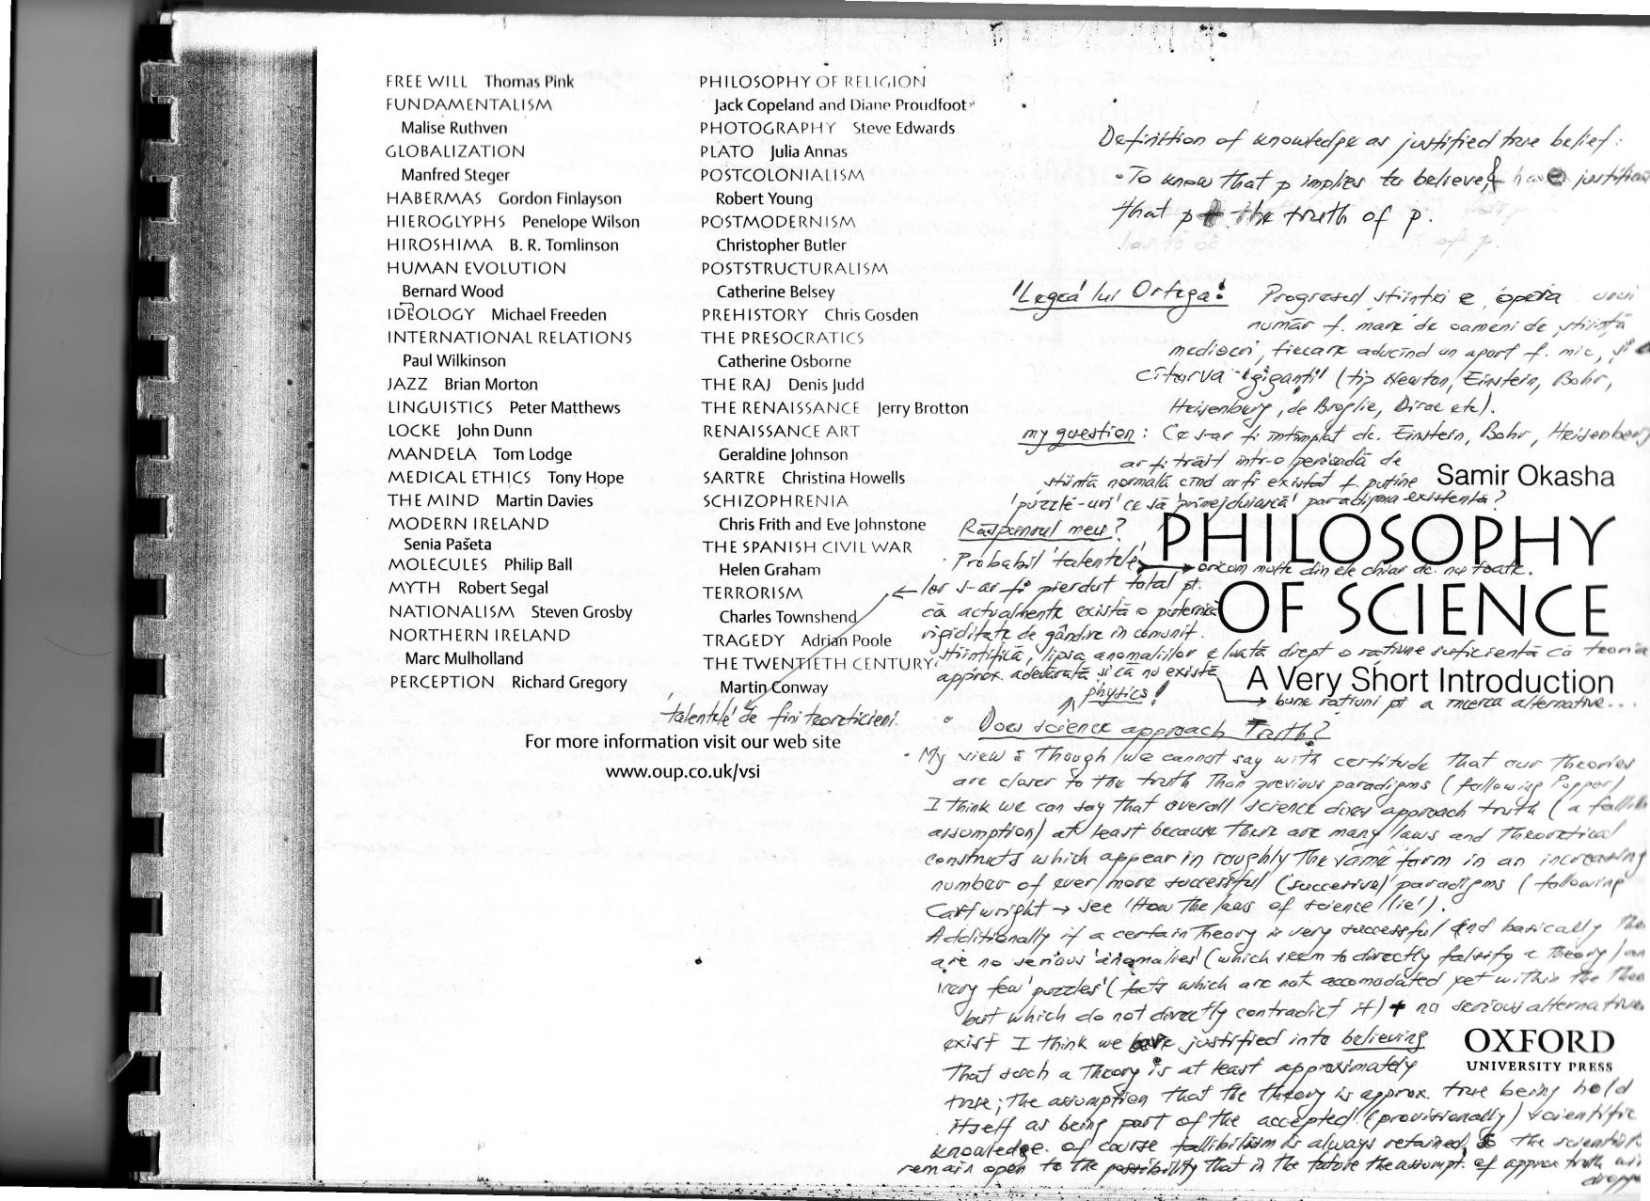 FREE WILL Thomas Pink
FUNDAMENTALISM
Malise Ruthven
GLOBALIZATION
Manfred Steger
HABERMAS Gordon Finlayson
HIEROGLYPHS Penelope Wilson
HIROSHIMA B. R. Tomlinson
HUMAN EVOLUTION
Bernard Wood
IDEOLOGY Michael Freeden
INTERNATIONAL RELATIONS
Paul Wilkinson
JAZZ Brian Morton
LINGUISTICS Peter Matthews
LOCKE John Dunn
MANDELA Tom Lodge
MEDICAL ETHICS Tony Hope
THE MIND Martin Davies
MODERN IRELAND
Senia Pašeta
MOLECULES Philip Ball
MYTH Robert Segal
NATIONALISM Steven Grosby
NORTHERN IRELAND
Marc Mulholland
PERCEPTION Richard Gregory
PHILOSOPHY OF RELIGION
Jack Copeland and Diane Proudfoot
PHOTOGRAPHY Steve Edwards
PLATO Julia Annas
POSTCOLONIALISM
Robert Young
POSTMODERNISM
Christopher Butler
POSTSTRUCTURALISM
Catherine Belsey
PREHISTORY Chris Gosden
THE PRESOCRATICS
Catherine Osborne
THE RAJ Denis Judd
THE RENAISSANCE Jerry Brotton
RENAISSANCE ART
Geraldine Johnson
SARTRE Christina Howells
SCHIZOPHRENIA
Chris Frith and Eve Johnstone
THE SPANISH CIVIL WAR
Helen Graham
TERRORISM
Charles Townshend
TRAGEDY Adrian Poole
THE TWENTIETH CENTURY
Martin Conway
talentele de fini teoreticieni.
For more information visit our web site
www.oup.co.uk/vsi
Definition of knowledge as justified true belief:
• To know that p implies to believe, & have justified
that p the truth of p.
'Legea' lui Ortega: Progresul științei e opera unui
număr f. mare de oameni de știință
mediocri, fiecare aducînd un aport f. mic, și a
cîtorva "giganți" (tip Newton, Einstein, Bohr,
Heisenberg, de Broglie, Dirac etc).
my question: Ce s-ar fi întâmplat dc. Einstein, Bohr, Heisenberg
ar fi trăit într-o perioadă de
știință normală cînd ar fi existat f. puține
'puzzle-uri' ce să 'primejduiască' paradigma existentă?
Samir Okasha
PHILOSOPHY
OF SCIENCE
A Very Short Introduction
Răspunsul meu?
• Probabil 'talentele' → oricum multe din ele chiar dc. nu toate.
lor s-ar fi pierdut total pt.
că actualmente există o puternică
rigiditate de gândire în comunit.
științifică, lipsa anomaliilor e luată drept o rațiune suficientă că teoria
approx. adevărată și că nu există
→ bune rațiuni pt a încerca alternative...
physics!
• Does science approach Truth?
• My view: Though we cannot say with certitude that our theories
are closer to the truth than previous paradigms (following Popper)
I think we can say that overall science does approach truth (a fallib
assumption) at least because there are many laws and theoretical
constructs which appear in roughly the same form in an increasing
number of ever more successful (succesive) paradigms (following
Cartwright → see 'How the laws of science lie').
Additionally if a certain theory is very successful and basically the
are no serious 'anomalies' (which seem to directly falsify a theory) an
very few 'puzzles' (facts which are not accomodated yet within the theo
but which do not directly contradict it) + no serious alternative
exist I think we are justified into believing
that such a theory is at least approximately
true; the assumption that the theory is approx. true being hold
itself as being part of the accepted (provisionally) scientific
knowledge. Of course fallibilism is always retained, the scientists
remain open to the possibility that in the future the assumpt. of approx truth wi
dropp
OXFORD
UNIVERSITY PRESS